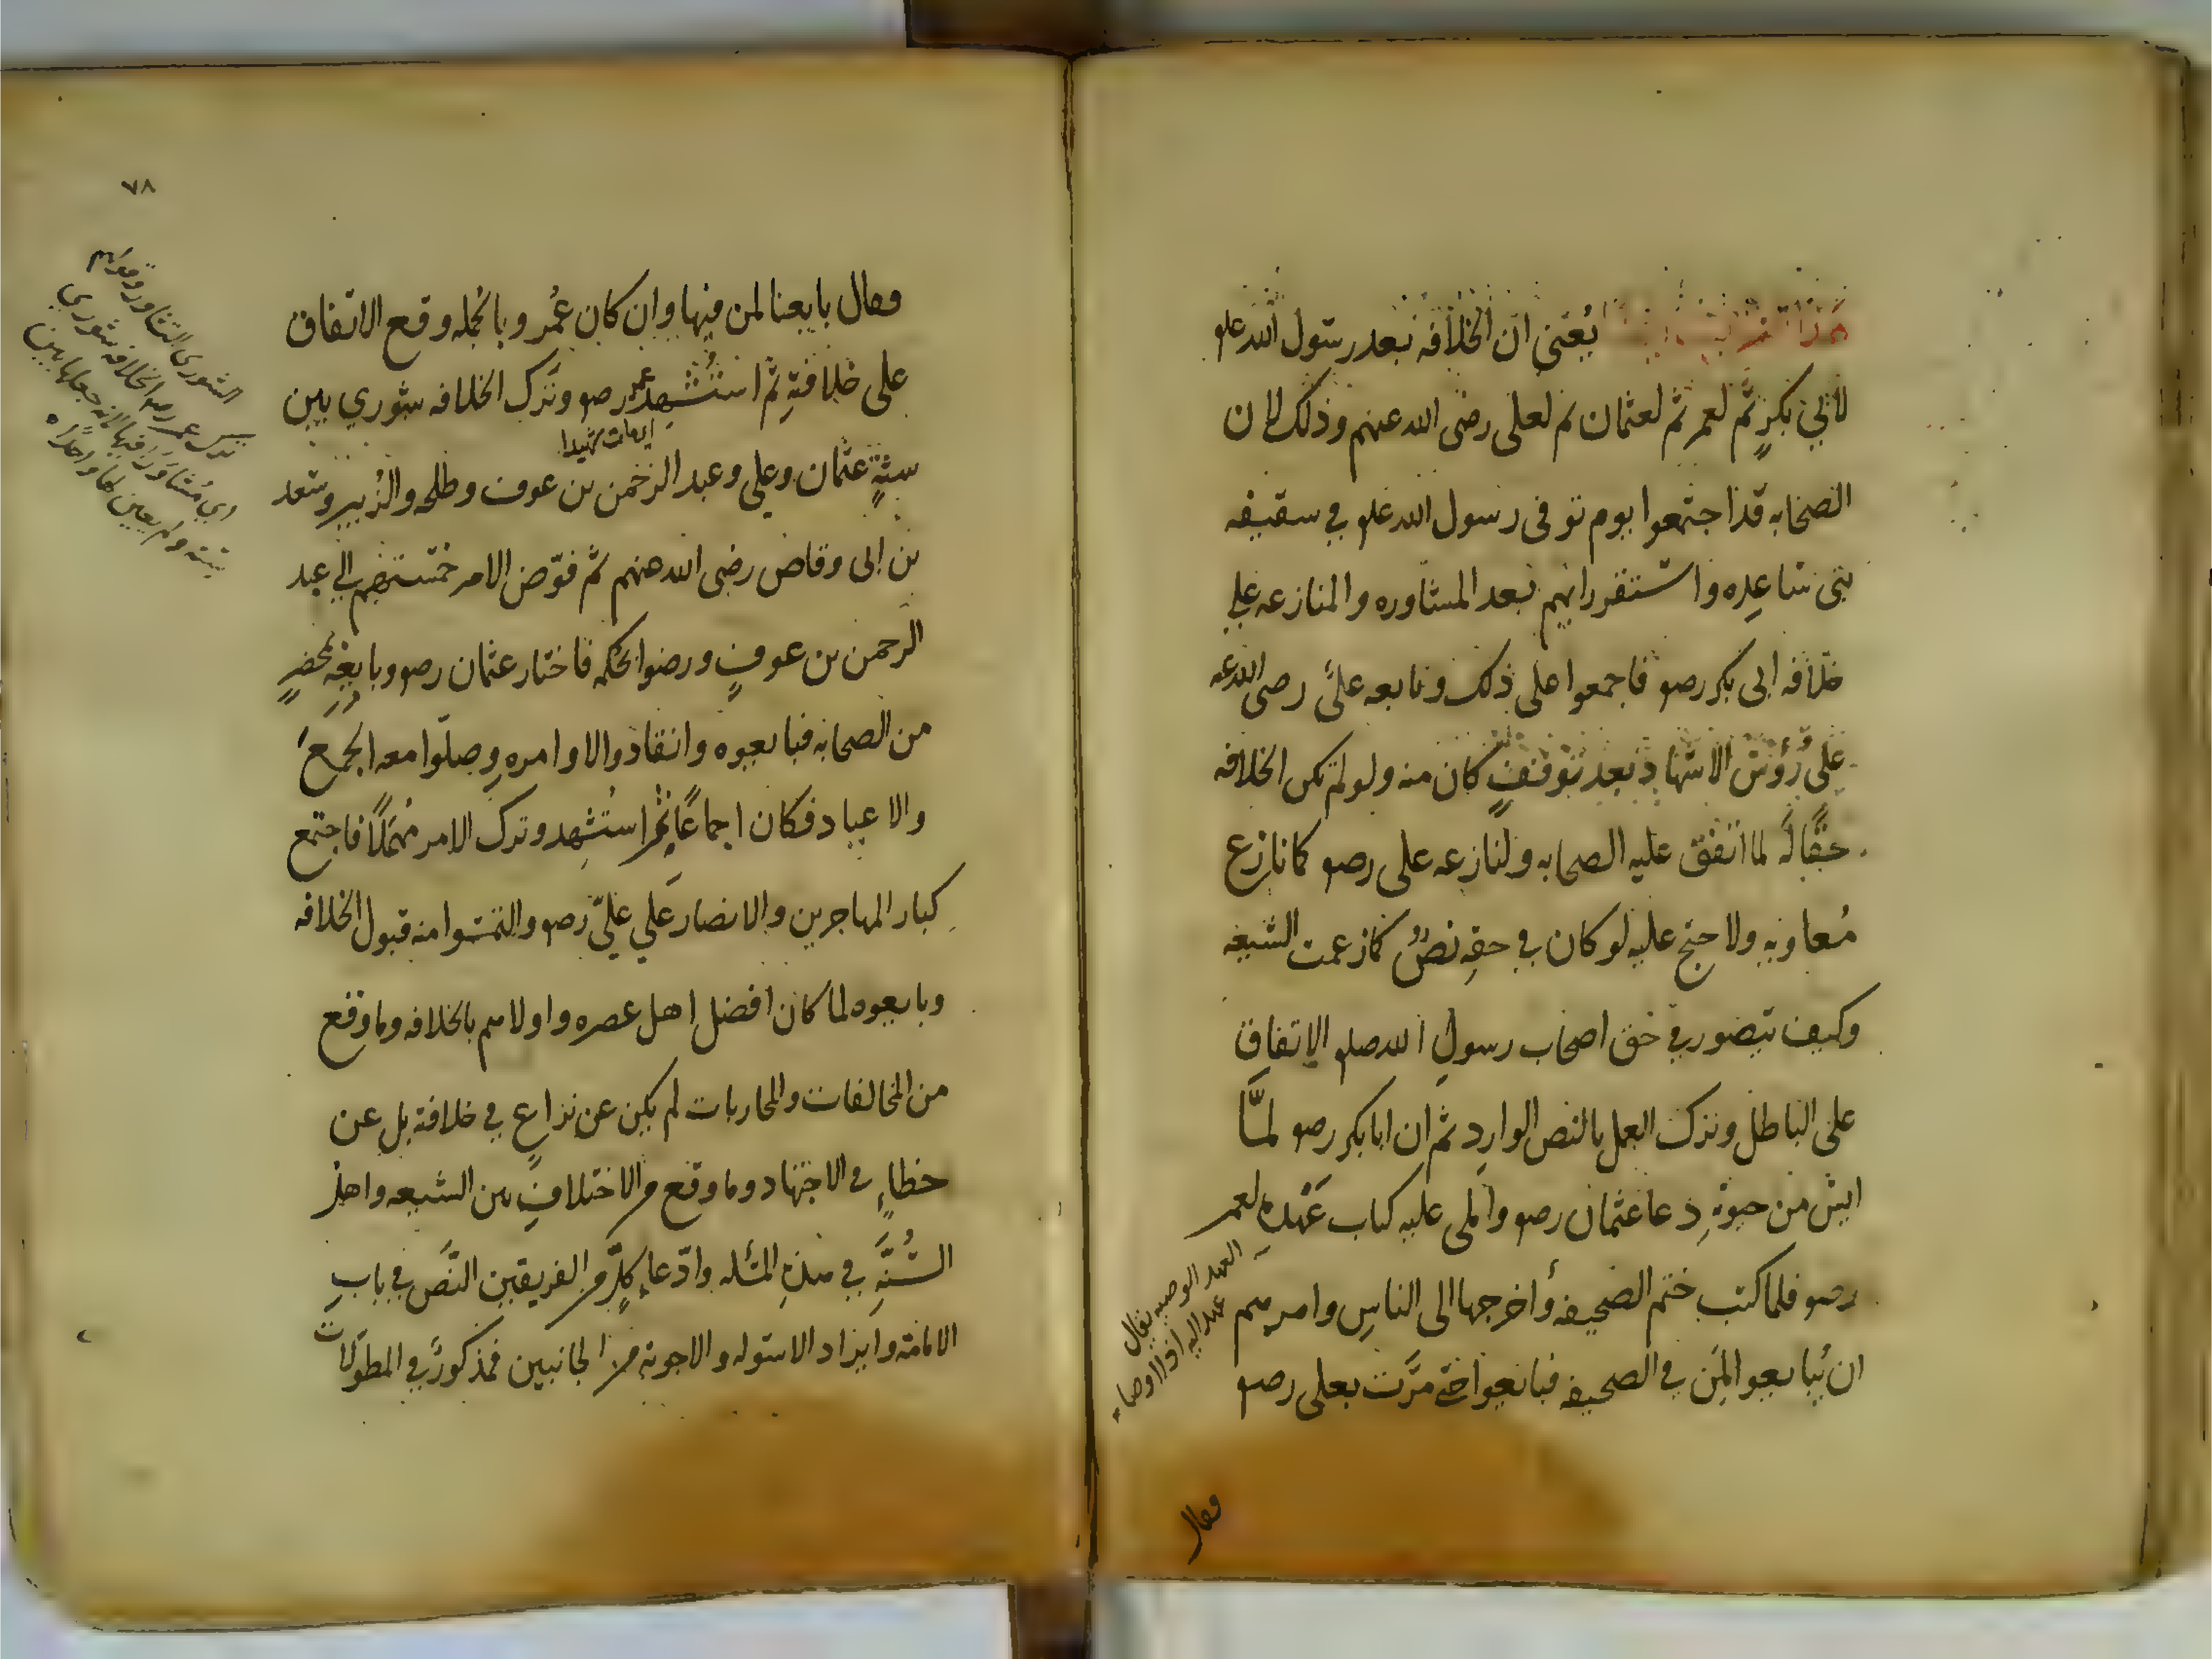 يعني ان الخلافه بعد رسول الله علم
لابي بكرٍ ثم لعمر ثم لعثمان ثم لعلى رضى الله عنهم وذلك لان
الصحابه قد اجتمعوا يوم توفى رسول الله علم في سقيفه
بنى ساعده واستقر رايهم بعد المشاوره والمنازعه علي
خلافه ابى بكر رضو فاجمعوا على ذلك وتابعه علىٌ رضى الله عنه
على رؤس الاشهاد بعد توقفٍ كان منه ولو لم تكن الخلافه
حقًّا له لما اتفق عليه الصحابه ولنازعه على رضو كما نازع
مُعاويه ولاحتج عليه لو كان في حقه نصٌ كما زعمت الشيعه
وكيف يتصور في حق اصحاب رسول الله صلم الاتفاق
على الباطل وترك العمل بالنص الوارد ثم ان ابا بكر رضو لمّا
ايس من حيوته دعا عثمان رضو واملى عليه كتاب عهده لعمر
رضو فلما كتب ختم الصحيفه وأخرجها الى الناس وامرهم
ان يبايعوا لمن في الصحيفه فبايعوا حتى مرّت بعلى رضو
العهد الوصيه يقال
عهد اليه اذا اوصاه
وقال
٧٨
وقال بايعنا لمن فيها وان كان عُمر وبالجمله وقع الاتفاق
على خلافته ثم استُشهد عمر رضو وترك الخلافه شوري بين
اي مات شهيدا
ستةٍ عثمان وعلي وعبد الرحمن بن عوف وطلحه والزبير وسعد
بن ابى وقاص رضى الله عنهم ثم فوّض الامر خمستهم الي عبد
الرحمن بن عوفٍ ورضوا بحكمه فاختار عثمان رضو وبايعه بمحضرٍ
من الصحابه فبايعوه وانقادوا لاوامره وصلّوا معه الجمع
والاعياد فكان اجماعًا ثم استُشهد وترك الامر مُهملًا فاجتمع
كبار المهاجرين والانصار علي عليّ رضو والتمسوا منه قبول الخلافه
وبايعوه لما كان افضل اهل عصره واولاهم بالخلافه وما وقع
من المخالفات والمحاربات لم يكن عن نزاعٍ في خلافته بل عن
خطاءٍ في الاجتهاد وما وقع من الاختلاف بين الشيعه واهل
السُّنَّةِ في هذه المسئله وادّعاء كلٍّ من الفريقين النصّ في باب
الامامة وايراد الاسئوله والاجوبة من الجانبين فمذكورٌ في المطوّلات
الشورى التشاور وقولهم
ترك عمر رضو الخلافه شوري
اي مُتشاوَرًا فيها لانه جعلها بين
ستة ولم يعين لها واحدًا